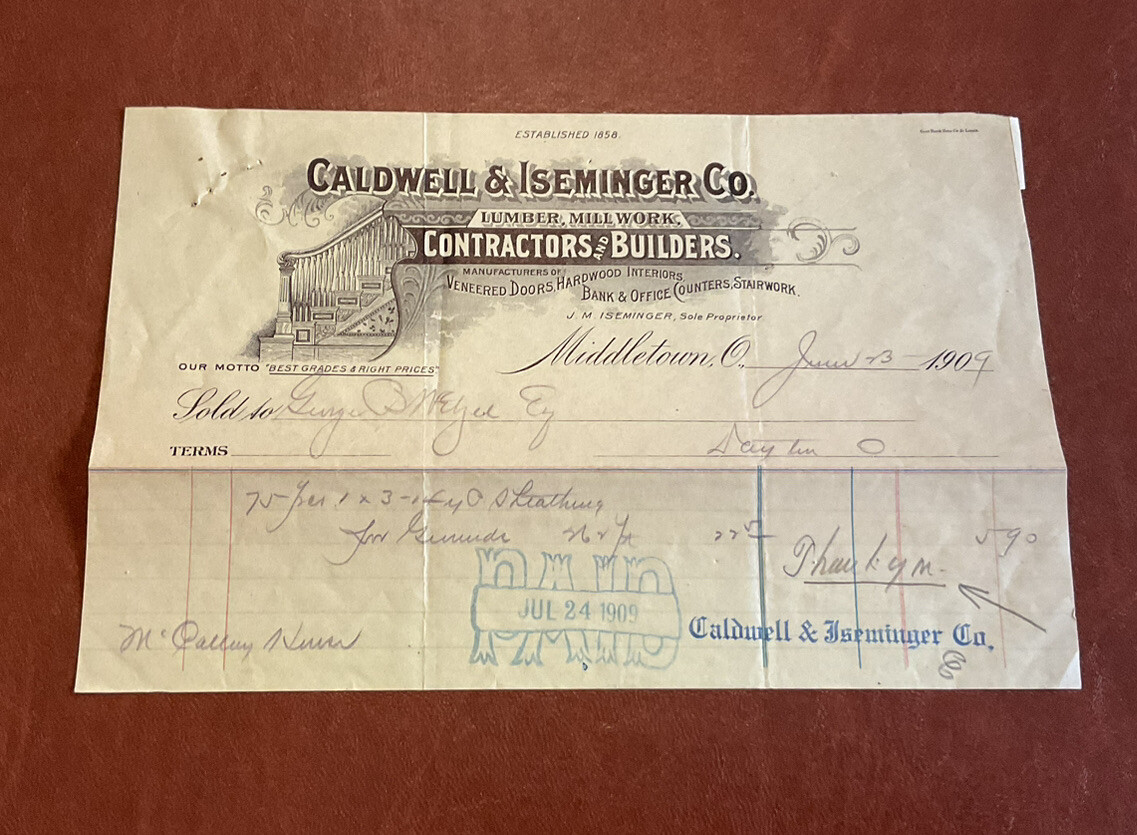 ESTABLISHED 1858.
CALDWELL & ISEMINGER CO.
LUMBER, MILLWORK,
CONTRACTORS AND BUILDERS.
MANUFACTURERS OF
VENEERED DOORS, HARDWOOD INTERIORS,
BANK & OFFICE COUNTERS, STAIRWORK.
J. M. ISEMINGER, Sole Proprietor
Middletown, O., June 23 1909
OUR MOTTO "BEST GRADES & RIGHT PRICES"
Sold to George B
TERMS Dayton O
75 pcs 1 x 3 - Sheathing
for 22 5 5 90
Thank you.
PAID
JUL 24 1909
Caldwell & Iseminger Co.